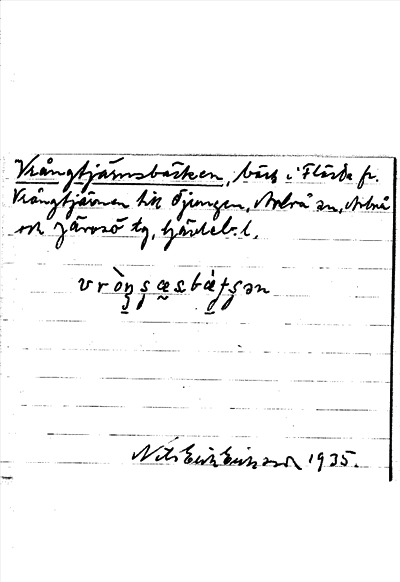 Vrångtjärnsbäcken, bäck i Flästa fr.
Vrångtjärnen till Djungen, Arbrå sn, Arbrå
och Järvsö tg, Gävleb. l.
Nils Erik Eriksson 1935.